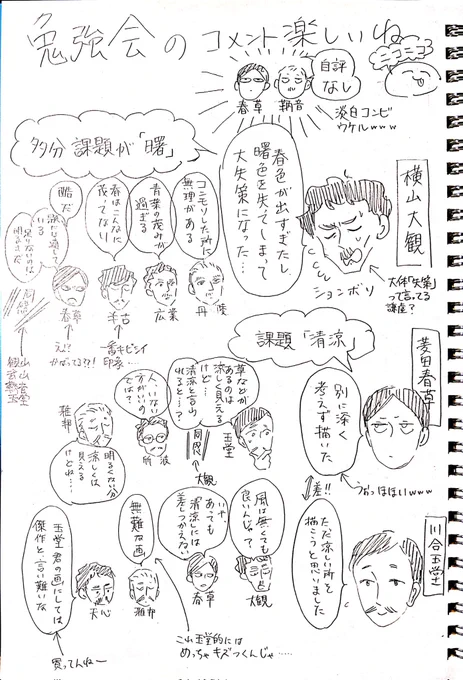 勉強会のコメント楽しいね
ニコニコ
自評
なし
春草
鞆音
淡白コンビ
ウケルwww
多分課題が「曙」
春色が出すぎたし
曙色を失てしまて
大失策になった…
横山大観
ションボリ
大体「失策」
って言ってる
講座?
コンモリした所に
無理がある
丹陵
青葉の茂みが
過ぎる
広業
春はこんなに
茂ってない
半古
一番キビシイ
印象…
酷だ
春草
え!?
かばってる??!
玉堂
課題「清涼」
菱田春草
別に深く
考えず描いた
うおっほほいwww
差!!
川合玉堂
ただ涼しい所を
描こうと思いました
草などが
あるのは
涼しく見える
けど…
清涼と言われると…?
玉堂
同感
大観
人いない
方がいいの
では?
雅邦
明るくない分
涼しくは
見える
けどね…
風は無くても
良いんじゃ?
大観
いや、
あっても
清涼には
差しつかえない
春草
無難な画
雅邦
これ玉堂的には
めっちゃキズつくんじゃ……
玉堂君の画にしては
傑作と言い難いな
天心
買ってんねー